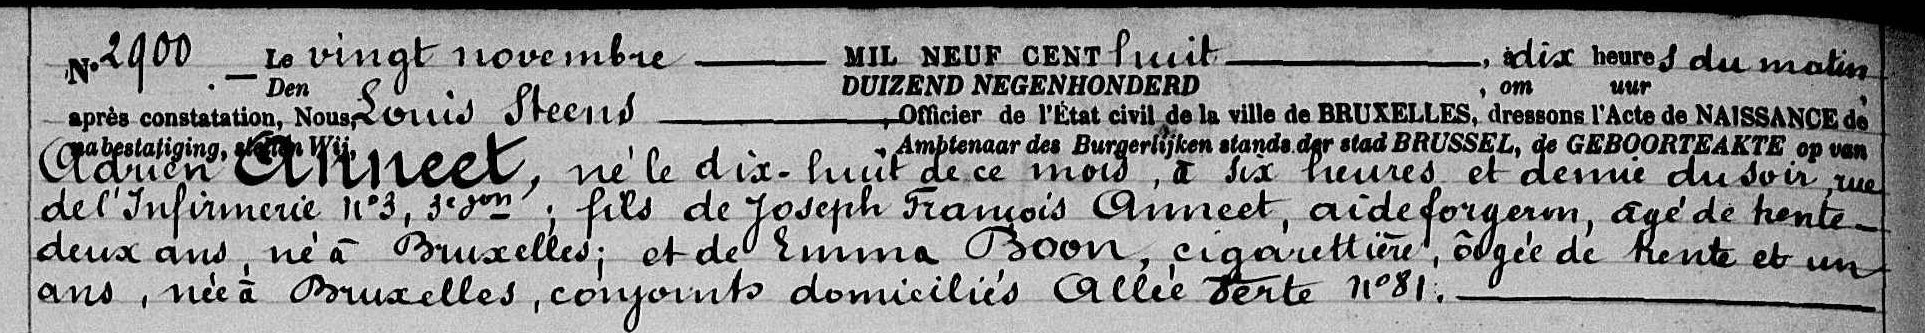 N° 2900. — Le vingt novembre — MIL NEUF CENT huit —, à dix heures du matin,
Den DUIZEND NEGENHONDERD , om uur
après constatation, Nous, Louis Steens —, Officier de l'État civil de la ville de BRUXELLES, dressons l'Acte de NAISSANCE de
na bestatiging, stellen Wij, , Ambtenaar des Burgerlijken stands der stad BRUSSEL, de GEBOORTEAKTE op van
Adrien Anneet, né le dix-huit de ce mois, à six heures et demie du soir, rue
de l'Infirmerie n° 3, 3e don ; fils de Joseph François Anneet, aide forgeron, âgé de trente-
deux ans, né à Bruxelles; et de Emma Boon, cigarettière, âgée de trente et un
ans, née à Bruxelles, conjoints domiciliés Allée Verte n° 81. —